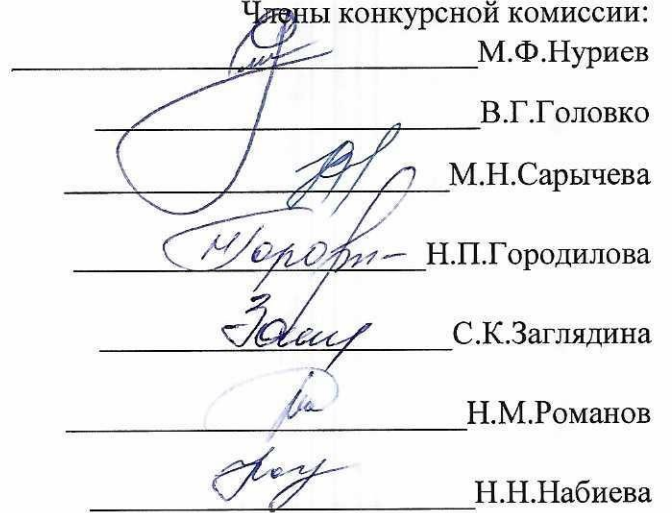 Члены конкурсной комиссии:
М.Ф.Нуриев
В.Г.Головко
М.Н.Сарычева
Н.П.Городилова
С.К.Заглядина
Н.М.Романов
Н.Н.Набиева